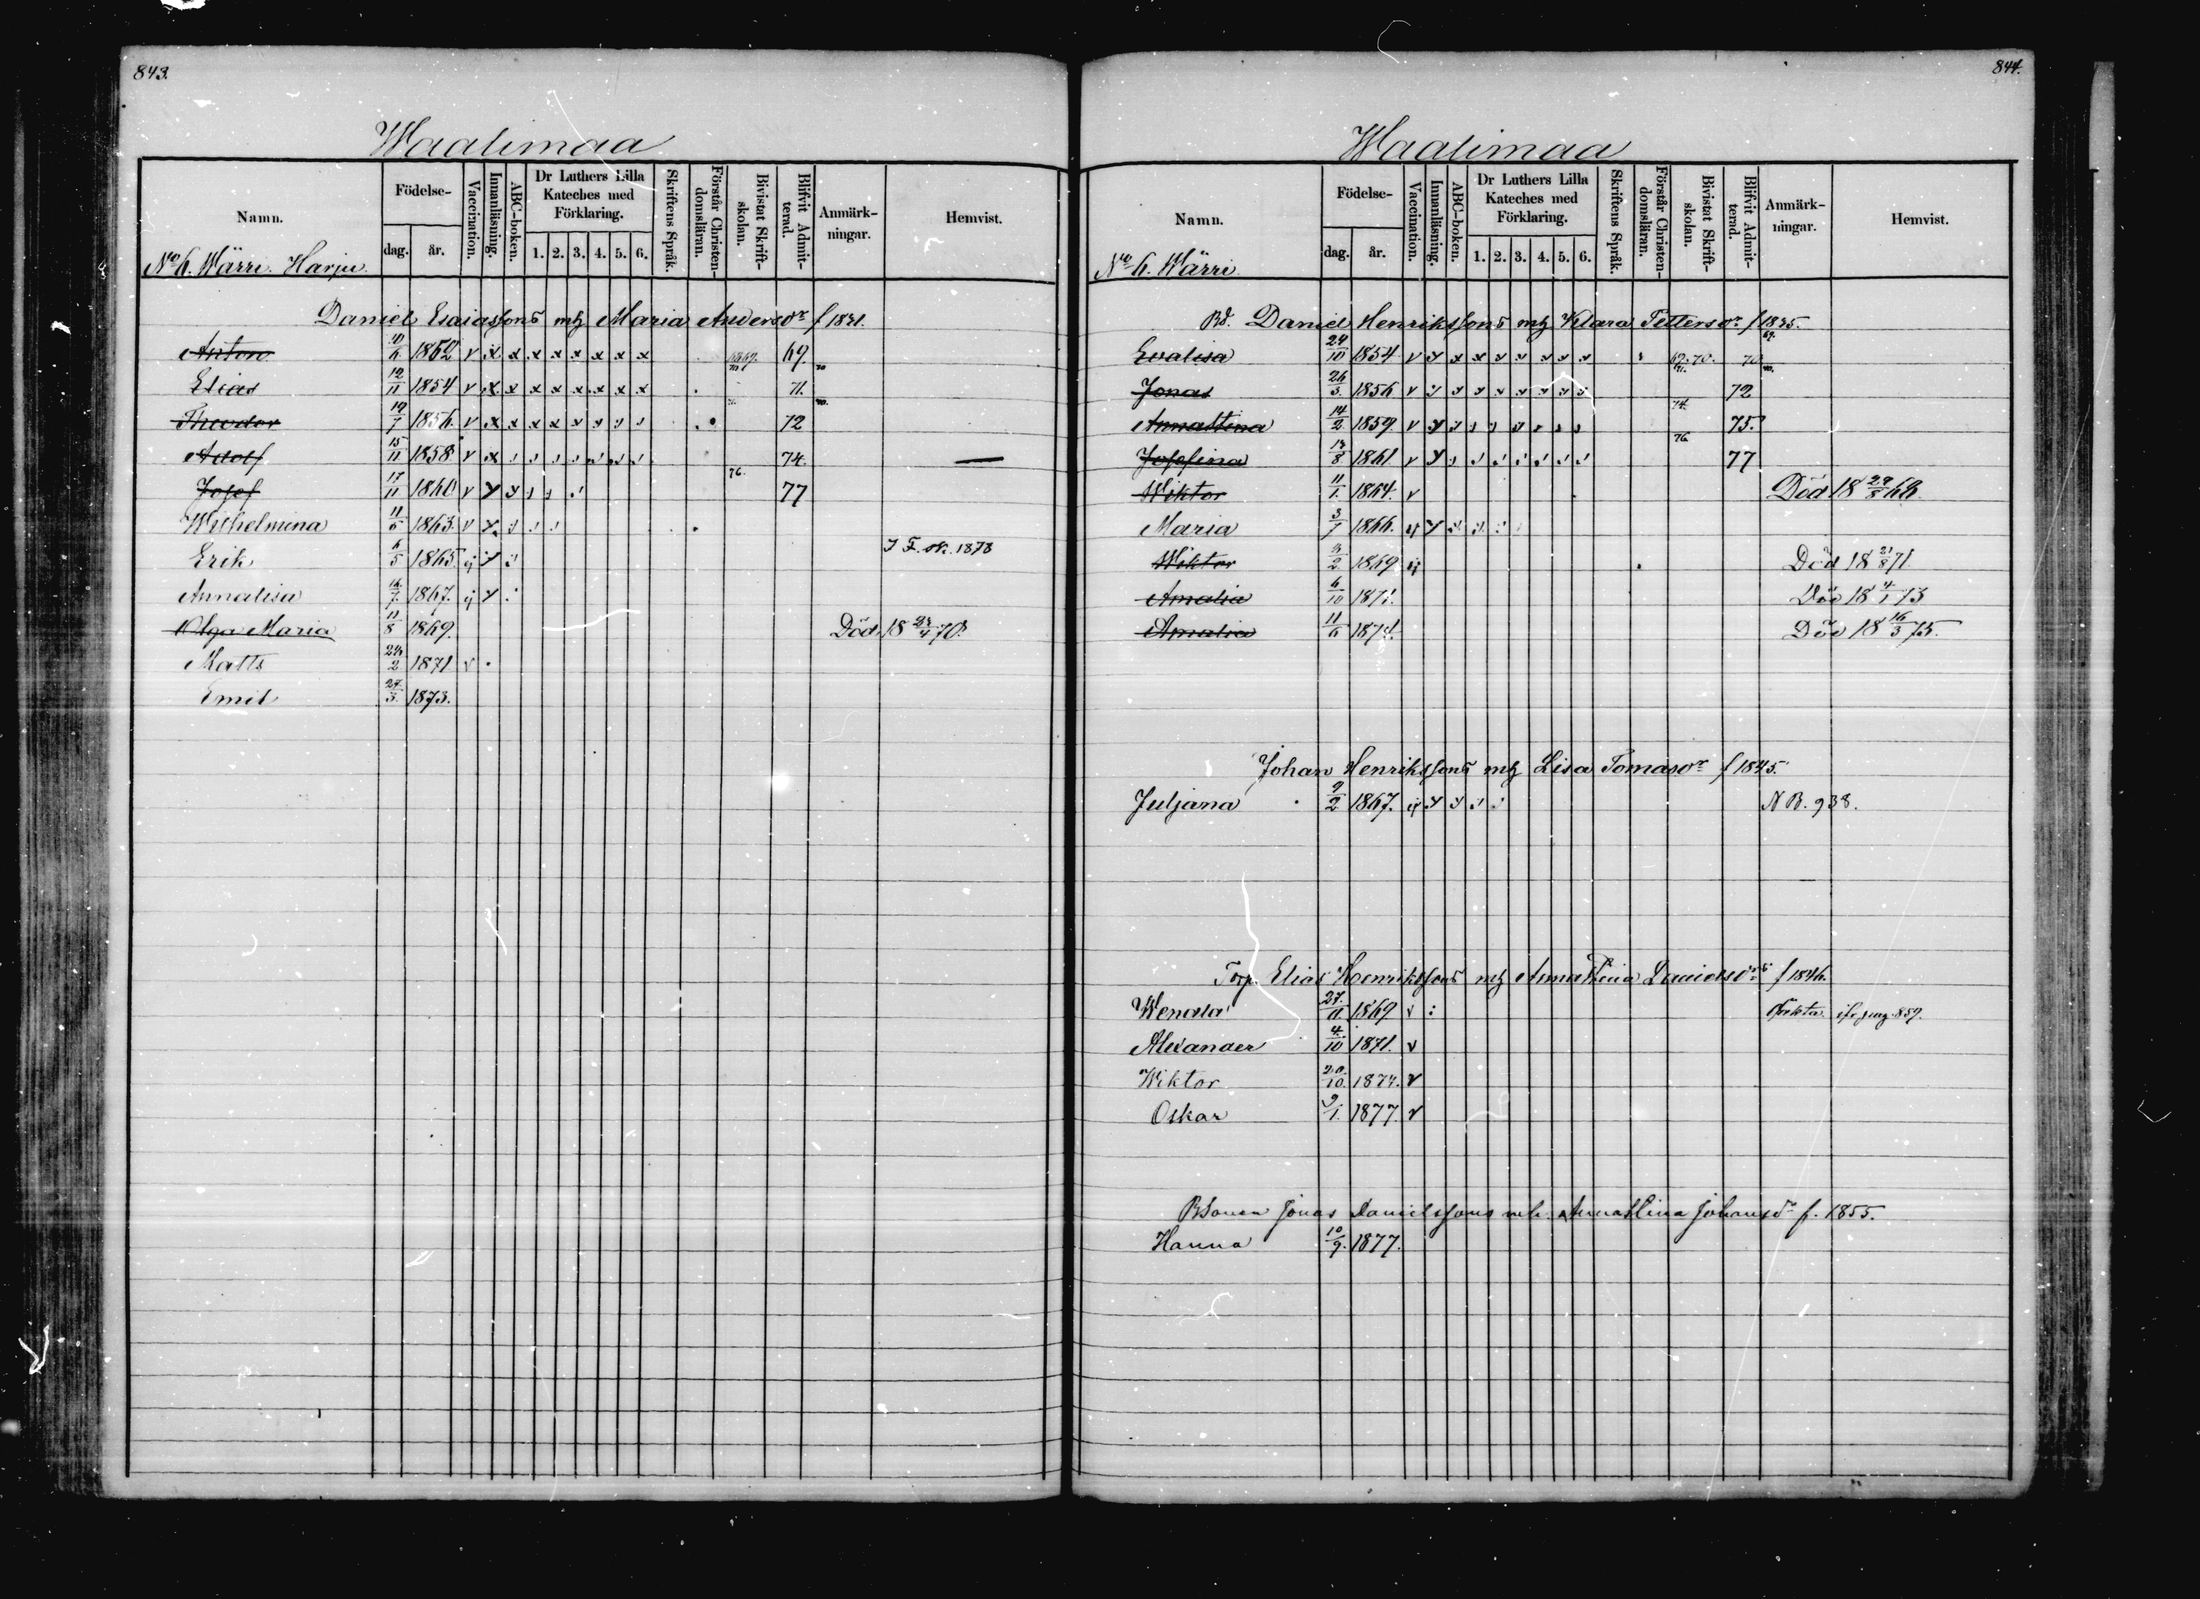 843.
Waalimaa
Namn. Födelse- dag. år. Vaccination. Innanläsning. ABC-boken. Dr Luthers Lilla Kateches med Förklaring. 1. 2. 3. 4. 5. 6. Skriftens Språk. Förstår Christendomsläran. Bivistat Skriftskolan. Blifvit Admitterad. Anmärkningar. Hemvist.
No 6. Wärri Harju
Daniel Esaiassons mh Maria Andersdr f 1831.
Anton 1852 v x x x x x x x x 1869. 69.
Elias 12/11 1854 v x x x x x x x x 71.
Theodor 19/7 1856. v x x x x x x 72
Adolf 15/11 1858 v x 74.
Josef 17/11 1860 v 76. 77
Wilhelmina 11/6 1863. v
Erik 6/5 1865. 1878
Annalisa 16/7 1867.
Olga Maria 11/8 1869. Död 18 23/4 70.
Matts 24/2 1871 v
Emil 27/3. 1873.
844.
Waalimaa
Namn. Födelse- dag. år. Vaccination. Innanläsning. ABC-boken. Dr Luthers Lilla Kateches med Förklaring. 1. 2. 3. 4. 5. 6. Skriftens Språk. Förstår Christendomsläran. Bivistat Skriftskolan. Blifvit Admitterad. Anmärkningar. Hemvist.
No 6. Wärri
Bd. Daniel Henrikssons mh Klara Pettersdr f 1835.
Evalisa 24/10 1854 v 69. 70. 70
Jonas 26/3. 1856 v 71. 72
Annastina 14/2 1859. v 74. 75.
Josefina 13/8 1861 v 76. 77
Wiktor 11/1. 1864. v Död 18 29/8 66.
Maria 3/1 1866.
Wiktor 3/2. 1869 Död 18 21/8 71
Amalia 6/10 1871. Död 18 4/1 73
Amalia 11/6 1874 Död 18 16/3 75.
Johan Henrikssons mh Lisa Tomasdr f 1845.
Juljana 9/2 1867. N B. 938.
Torp. Elias Henrikssons mh Annastina Danielsdr f 1846.
Wenda 27/11 1869 v 859.
Alexander 4/10 1871. v
Wiktor 20./10. 1874. v
Oskar 9/1. 1877. v
Bsonen Jonas Danielssons mh. Annastina Johansdr f. 1855.
Hanna 10/9. 1877.